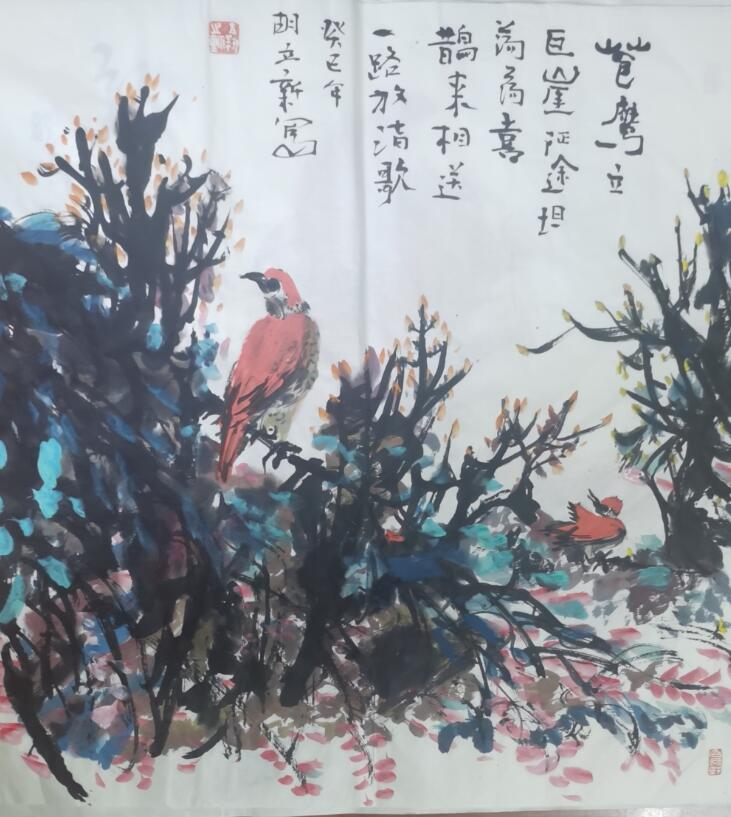 苍鹰立
巨崖征途坦
荡荡喜
鹊来相送
一路放清歌
癸巳年
胡立新写